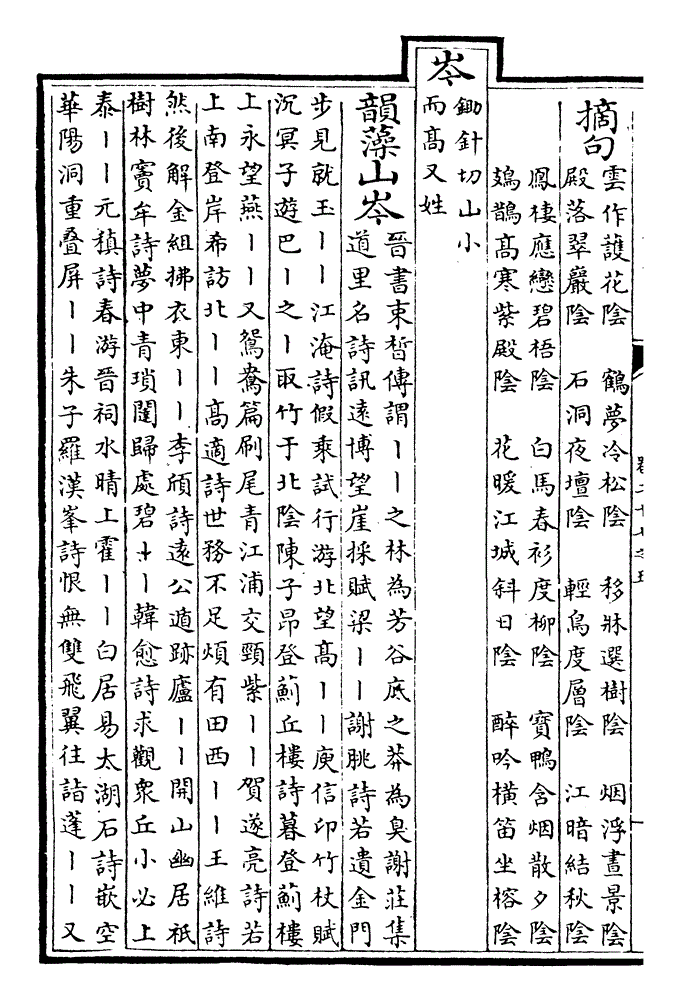 摘句
雲作護花陰　鶴夢冷松陰　移牀選樹陰　烟浮晝景陰
殿落翠巖陰　石洞夜壇陰　輕鳥度層陰　江暗結秋陰
鳳棲應戀碧梧陰　白馬春衫度柳陰　寶鴨含烟散夕陰
鳷鵲高寒紫殿陰　花暖江城斜日陰　醉吟橫笛坐榕陰
岑
鋤針切山小
而高又姓
韻藻山岑
晉書束晳傳謂丨丨之林為芳谷底之莽為臭謝莊集
道里名詩訊遠博望崖採賦梁丨丨謝朓詩若遺金門
步見就玉丨丨江淹詩假乘試行游北望高丨丨庾信卬竹杖賦
沉冥子遊巴丨之丨取竹于北陰陳子昂登薊丘樓詩暮登薊樓
上永望燕丨丨又鴛鴦篇刷尾青江浦交頸紫丨丨賀遂亮詩若
上南登岸希訪北丨丨高適詩世務不足煩有田西丨丨王維詩
然後解金組拂衣東丨丨李頎詩遠公遁跡廬丨丨開山幽居祇
樹林竇牟詩夢中青瑣闥歸處碧十丨韓愈詩求觀衆丘小必上
泰丨丨元稹詩春游晉祠水晴上霍丨丨白居易太湖石詩嵌空
華陽洞重疊屏丨丨朱子羅漢峯詩恨無雙飛翼往詣蓬丨丨又